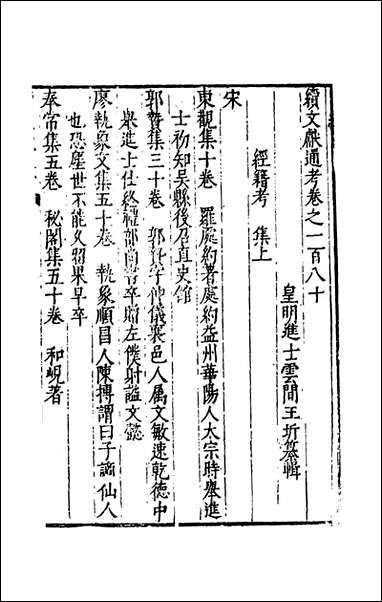 續文獻通考卷之一百八十
皇明進士雲間王圻纂輯
經籍考 集上
宋
東觀集十卷 羅處約著處約益州華陽人太宗時舉進
士初知吳縣後召直史館
郭贄集三十卷 郭贄字仲儀襄邑人属文敏速乾德中
舉進士仕終禮部尚書卒贈左僕射謚文懿
廖執象文集五十卷 執象順昌人陳摶謂曰子謫仙人
也恐塵世不能久留果早卒
奉常集五卷 秘閣集五十卷 和峴著